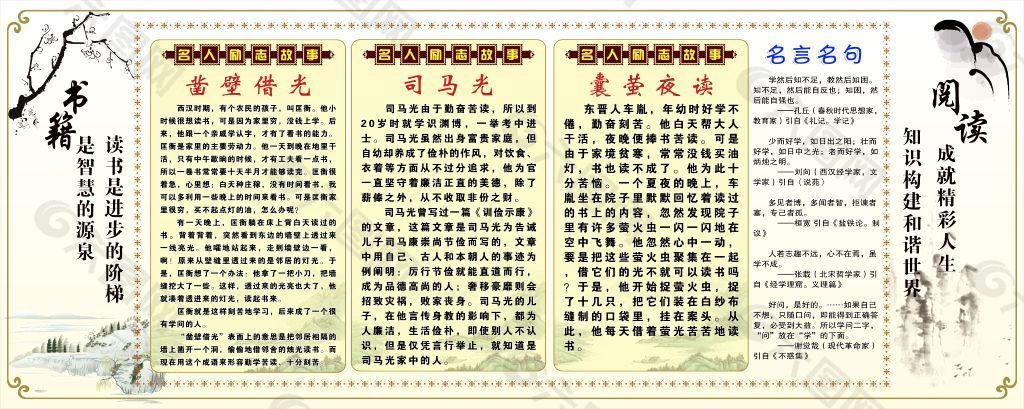 书籍
是智慧的源泉
读书是进步的阶梯
名人励志故事
凿壁借光
西汉时期，有个农民的孩子，叫匡衡。他小
时候很想读书，可是因为家里穷，没钱上学。后
来，他跟一个亲戚学认字，才有了看书的能力。
匡衡是家里的主要劳动力。他一天到晚在地里干
活，只有中午歇晌的时候，才有工夫看一点书，
所以一卷书常常要十天半月才能够读完。匡衡很
着急，心里想：白天种庄稼，没有时间看书，我
可以多利用一些晚上的时间来看书。可是匡衡家
里很穷，买不起点灯的油，怎么办呢？
有一天晚上，匡衡躺在床上背白天读过的
书。背着背着，突然看到东边的墙壁上透过来
一线亮光。他嚯地站起来，走到墙壁边一看，
啊！原来从壁缝里透过来的是邻居的灯光。于
是，匡衡想了一个办法：他拿了一把小刀，把墙
缝挖大了一些。这样，透过来的光亮也大了，他
就凑着透进来的灯光，读起书来。
匡衡就是这样刻苦地学习，后来成了一个很
有学问的人。
“凿壁借光”表面上的意思是把邻居相隔的
墙上凿开一个洞，偷偷地借邻舍的烛光读书。而
现在用这个成语来形容勤学苦读，十分刻苦。
名人励志故事
司马光
司马光由于勤奋苦读，所以到
20岁时就学识渊博，一举考中进
士。司马光虽然出身富贵家庭，但
自幼却养成了俭朴的作风，对饮食、
衣着等方面从不过分追求，他为官
一直坚守着廉洁正直的美德，除了
薪俸之外，从不收取非份之财。
司马光曾写过一篇《训俭示康》
的文章，这篇文章是司马光为告诫
儿子司马康崇尚节俭而写的，文章
中用自己、古人和本朝人的事迹为
例阐明：厉行节俭就能直道而行，
成为品德高尚的人；奢移豪靡则会
招致灾祸，败家丧身。司马光的儿
子，在他言传身教的影响下，都为
人廉洁，生活俭朴，即使别人不认
识，但是仅凭言行举止，就知道是
司马光家中的人。
名人励志故事
囊萤夜读
东晋人车胤，年幼时好学不
倦，勤奋刻苦。他白天帮大人
干活，夜晚便捧书苦读。可是
由于家境贫寒，常常没钱买油
灯，书也读不成了。他为此十
分苦恼。一个夏夜的晚上，车
胤坐在院子里默默回忆着读过
的书上的内容，忽然发现院子
里有许多萤火虫一闪一闪地在
空中飞舞。他忽然心中一动，
要是把这些萤火虫聚集在一起
，借它们的光不就可以读书吗
？于是，他开始捉萤火虫，捉
了十几只，把它们装在白纱布
缝制的口袋里，挂在案头。从
此，他每天借着萤光苦苦地读
书。
名言名句
学然后知不足，教然后知困。
知不足，然后能自反也；知困，然
后能自强也。
——孔丘（春秋时代思想家，
教育家）引自《礼记。学记》
少而好学，如日出之阳；壮而
好学，如日中之光；老而好学，如
炳烛之明。
——刘向（西汉经学家，文
学家）引自（说苑）
多见者博，多闻者智，拒谏者
塞，专己者孤。
——桓宽 引自《盐铁论。制
议》
人若志趣不远，心不在焉，虽
学不成。
——张载（北宋哲学家）引
自《经学理窟。义理篇》
好问，是好的。……如果自己
不想，只随口问，即能得到正确答
复，必受到大益。所以学问二字，
“问”放在“学”的下面。
——谢觉哉（现代革命家）
引自《不惑集》
阅读
成就精彩人生
知识构建和谐世界